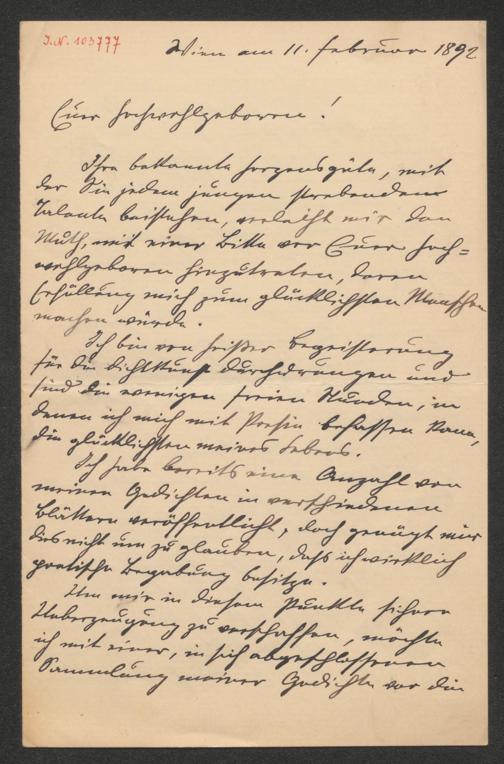 J.N. 103777
Wien am 11. Februar 1892
Euer Hochwohlgeboren!
Ihre bekannte Herzensgüte, mit
der Sie jedem jungen strebenden
Talente beistehen, verleiht mir den
Muth, mit einer Bitte vor Euer Hoch=
wohlgeboren hinzutreten, deren
Erfüllung mich zum glücklichsten Menschen
machen würde.
Ich bin von heißer Begeisterung
für die Dichtkunst durchdrungen und
sind die wenigen freien Stunden, in
denen ich mich mit Poesie befassen kann,
die glücklichsten meines Lebens.
Ich habe bereits eine Anzahl von
meinen Gedichten in verschiedenen
Blättern veröffentlicht, doch genügt mir
dies nicht um zu glauben, daß ich wirklich
poetische Begabung besitze.
Um mir in diesem Punkte sichere
Ueberzeugung zu verschaffen, möchte
ich mit einer, in sich abgeschlossenen
Sammlung meiner Gedichte vor die